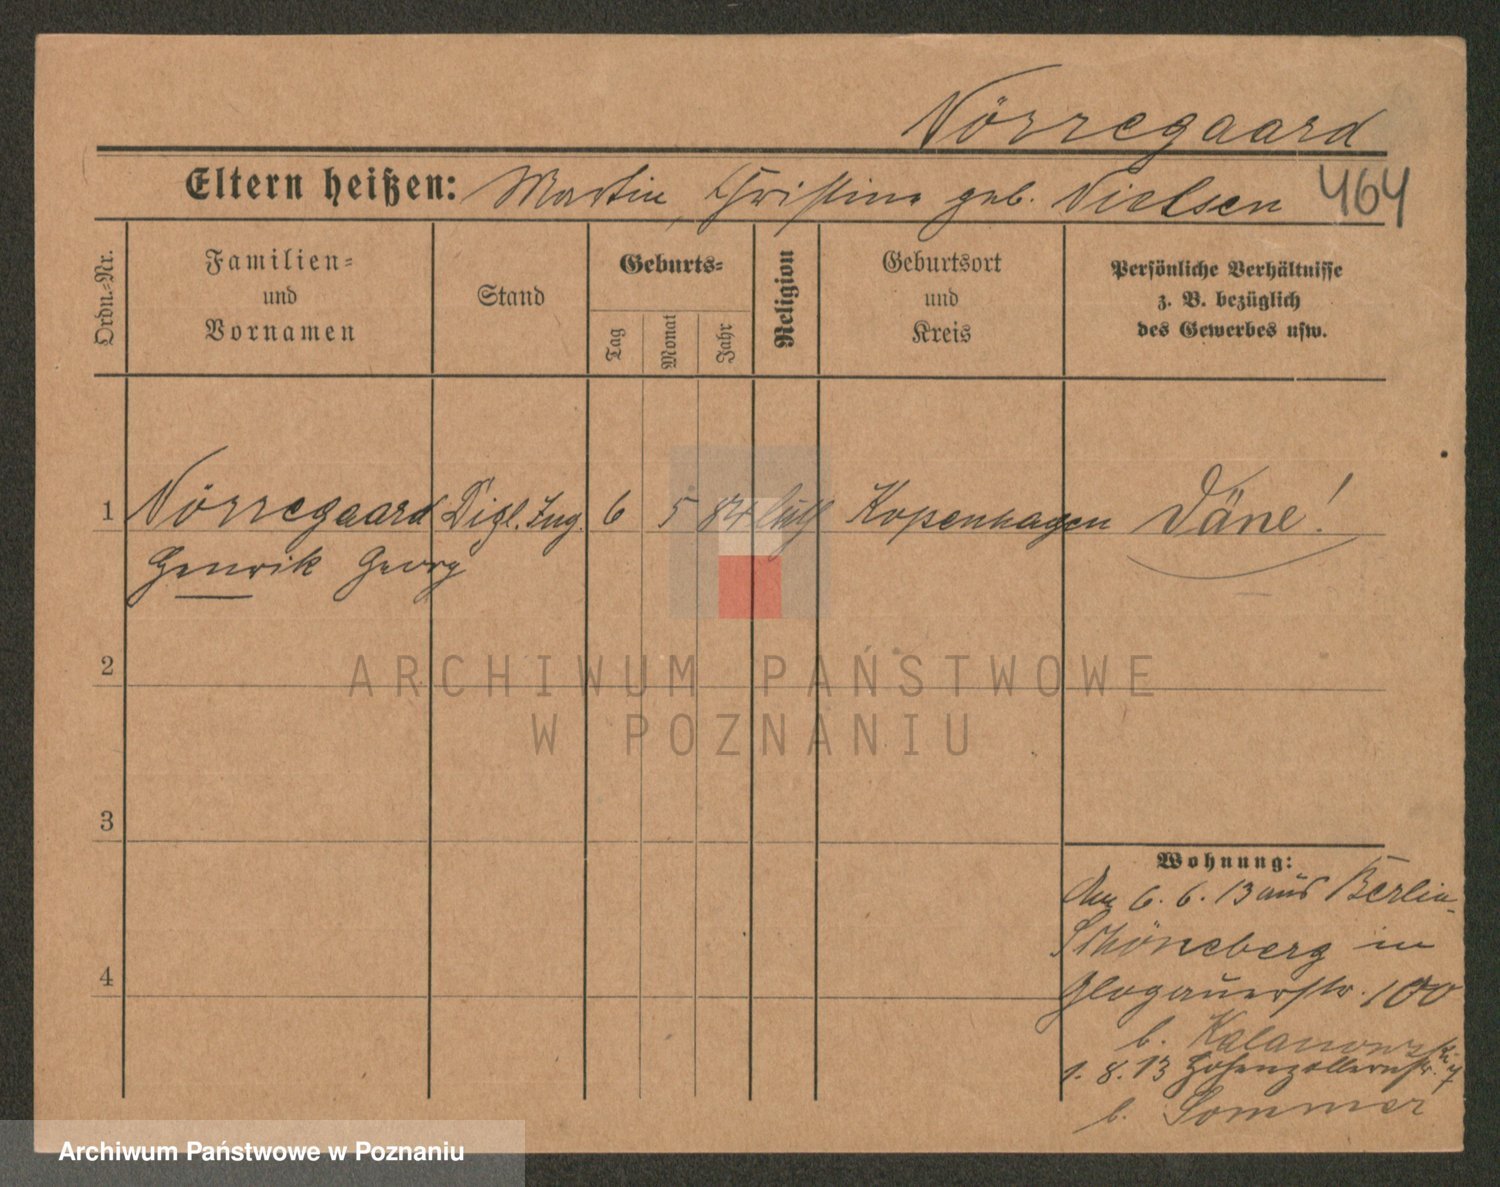 Nörregaard
Eltern heißen: Martin, Christine geb. Nielsen 464
Ordn.-Nr.
Familien-
und
Vornamen
Stand
Geburts-
Tag
Monat
Jahr
Religion
Geburtsort
und
Kreis
Persönliche Verhältnisse
z. B. bezüglich
des Gewerbes usw.
1 Nörregaard Dipl. Ing. 6 5 84 luth Kopenhagen Däne!
Henrik Georg
2
3
4
Wohnung:
Am 6. 6. 13 aus Berlin-
Schöneberg in
Glogauerstr. 100
b. Kalanowski
1. 8. 13 Hohenzollernstr. 7
b. Sommer
ARCHIWUM PAŃSTWOWE
W POZNANIU
Archiwum Państwowe w Poznaniu